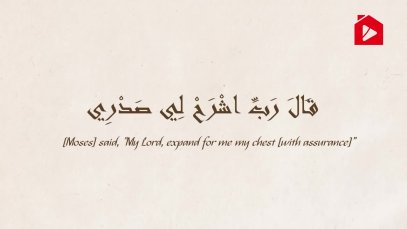 قَالَ رَبِّ اشْرَحْ لِي صَدْرِي
[Moses] said, "My Lord, expand for me my chest [with assurance]"